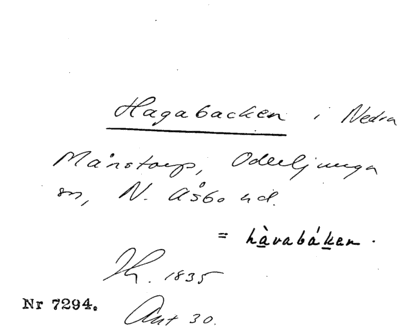 Hagabacken i Nedra
Månstorp, Oderljunga
sn, N. Åsbo hd.
= hàvabáken.
1835
Nr 7294.
Ant 30.